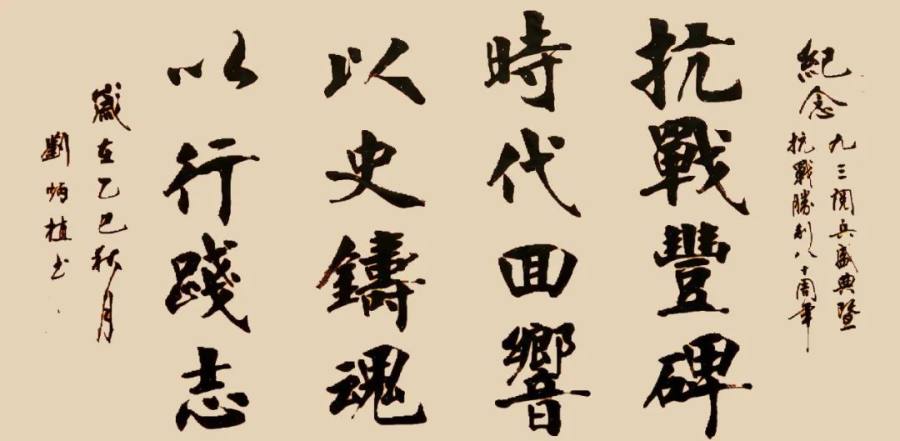 紀念
九三閱兵盛典暨
抗戰勝利八十周年
抗戰豐碑
時代回響
以史鑄魂
以行踐志
歲在乙巳秋月
劉炳植书